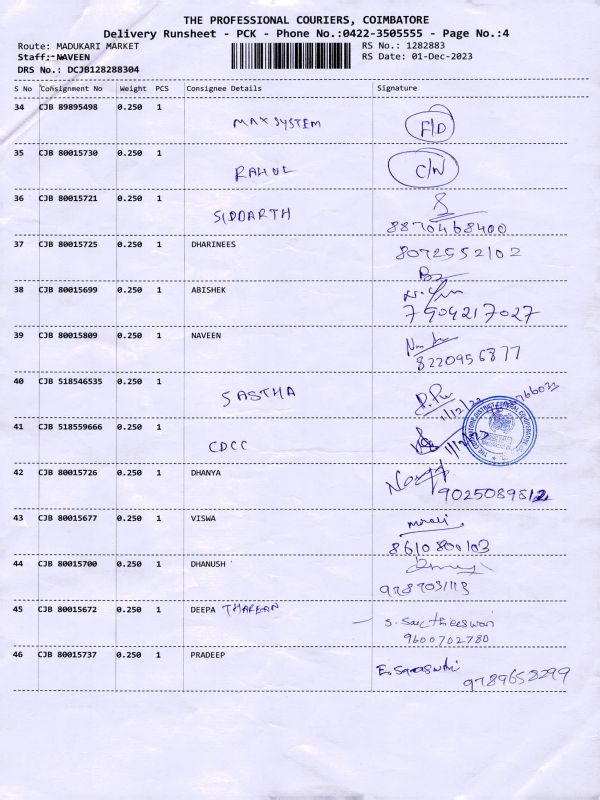 THE PROFESSIONAL COURIERS, COIMBATORE
Delivery Runsheet - PCK - Phone No.:0422-3505555 - Page No.:4
Route: MADUKARI MARKET RS No.: 1282883
Staff:-NAVEEN RS Date: 01-Dec-2023
DRS No.: DCJB128288304
S No Consignment No Weight PCS Consignee Details Signature
34 CJB 89895498 0.250 1
MAX SYSTEM F/D
35 CJB 80015730 0.250 1
RAHUL C/N
36 CJB 80015721 0.250 1
SIDDARTH
8870468400
37 CJB 80015725 0.250 1 DHARINEES 8072552102
38 CJB 80015699 0.250 1 ABISHEK
7904217027
39 CJB 80015809 0.250 1 NAVEEN
8220956877
40 CJB 518546535 0.250 1
SASTHA
41 CJB 518559666 0.250 1
CDCC
42 CJB 80015726 0.250 1 DHANYA
9025089812
43 CJB 80015677 0.250 1 VISWA
murali
8610800103
44 CJB 80015700 0.250 1 DHANUSH
45 CJB 80015672 0.250 1 DEEPA THAREAN
9600702780
46 CJB 80015737 0.250 1 PRADEEP
9789658299